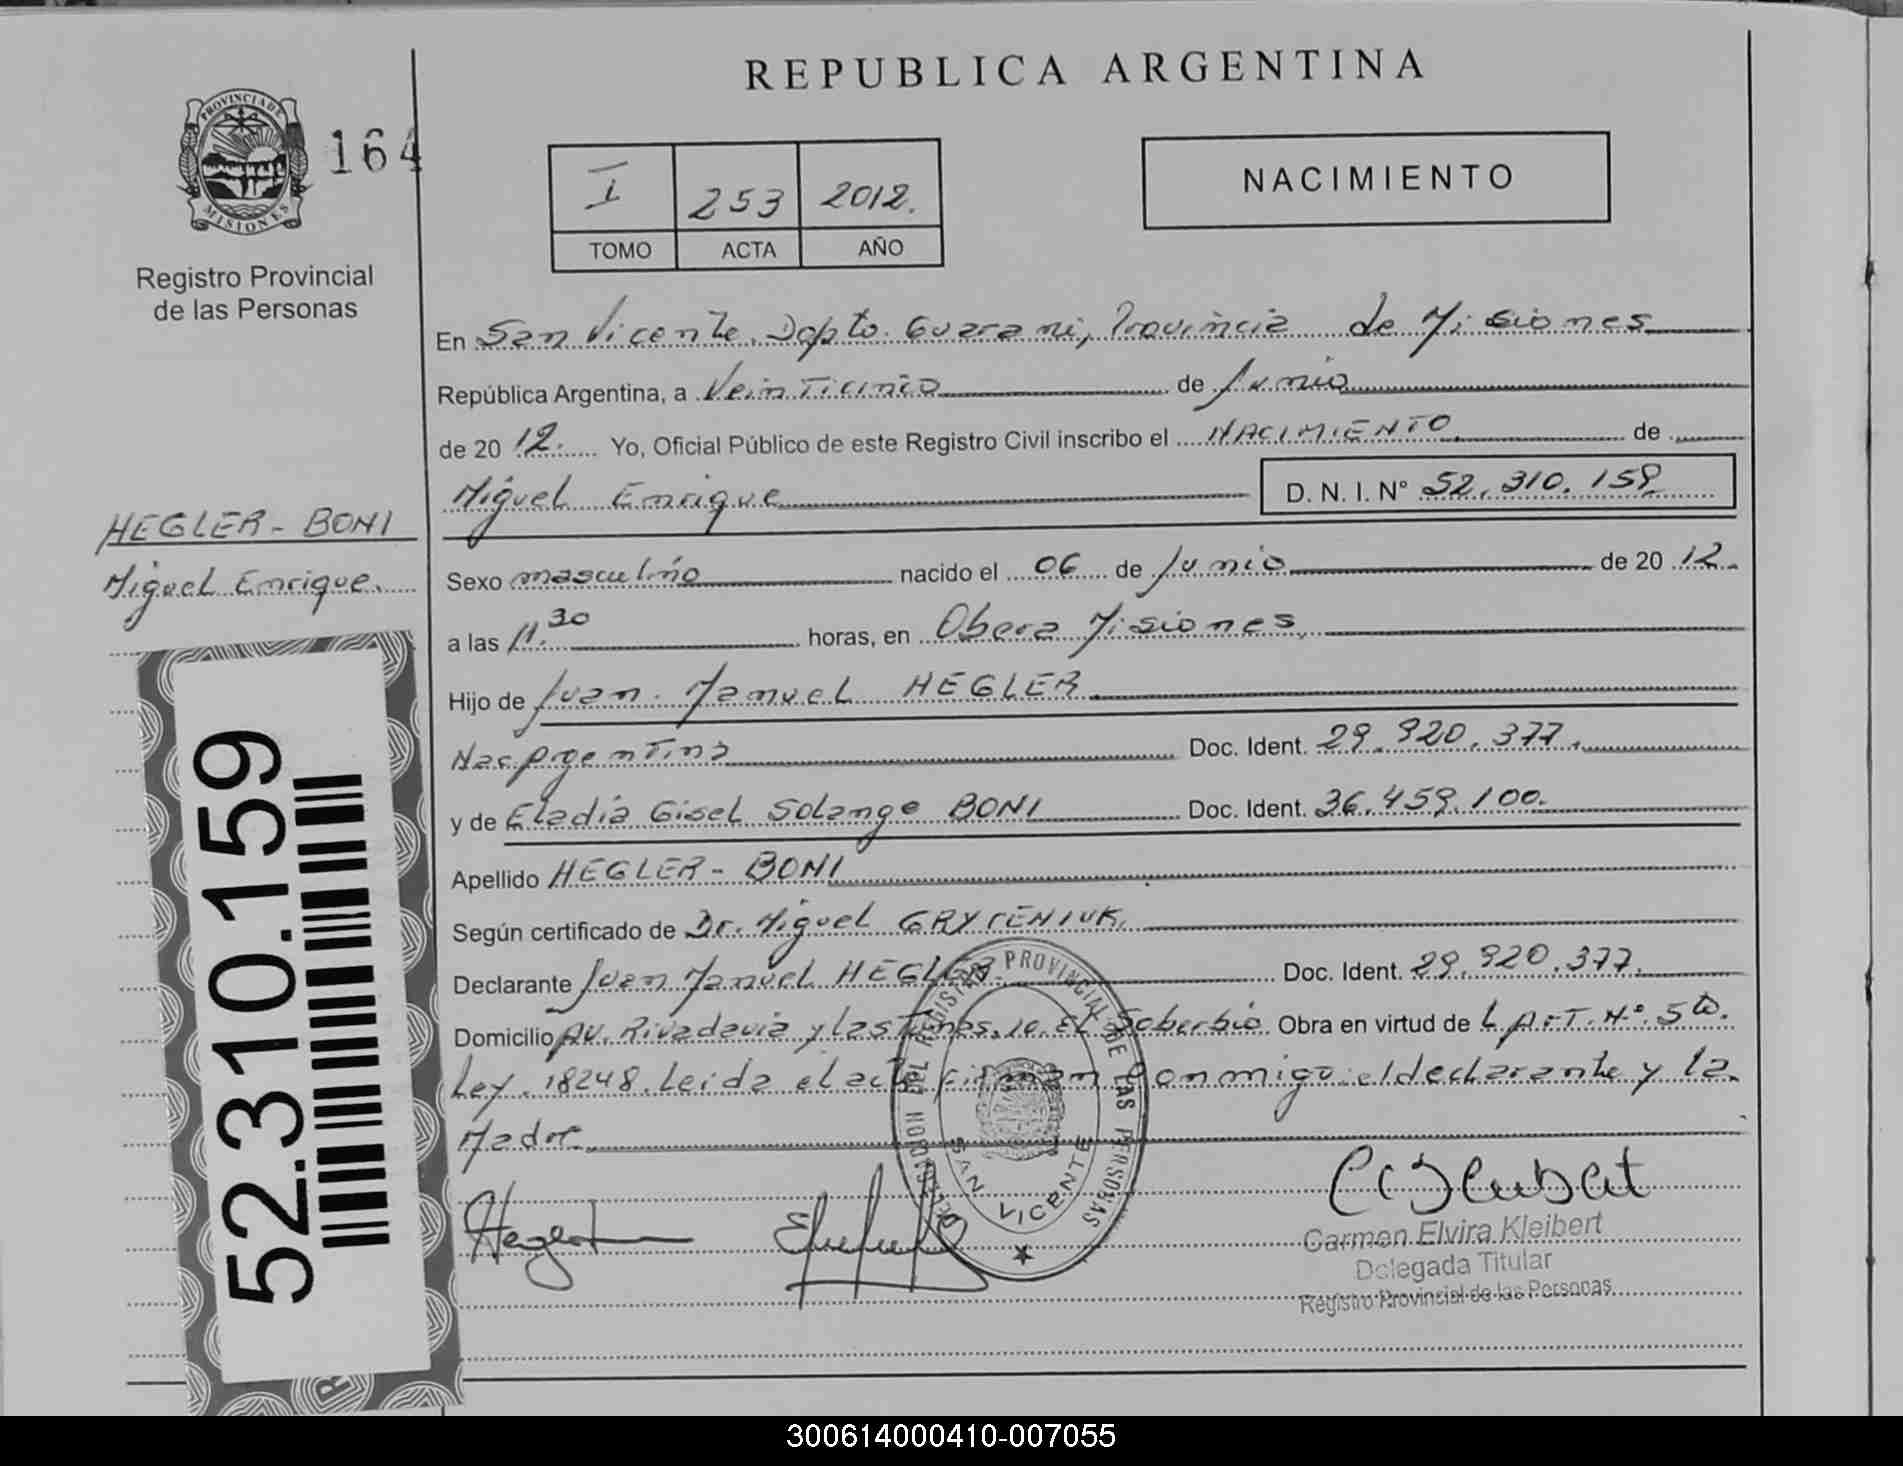 REPUBLICA ARGENTINA
PROVINCIA DE
MISIONES
164
Registro Provincial
de las Personas
I 253 2012.
TOMO ACTA AÑO
NACIMIENTO
En San Vicente, Dpto. Guarani, Provincia de Misiones
República Argentina, a Veinticinco de Junio
de 20 12. Yo, Oficial Público de este Registro Civil inscribo el NACIMIENTO de
Miguel Enrique D. N. I. N° 52.310.159
HEGLER - BONI
Miguel Enrique.
Sexo masculino nacido el 06 de Junio de 20 12.
a las 11.30 horas, en Obera Misiones,
Hijo de Juan Manuel HEGLER
Nac Argentina Doc. Ident. 29.920.377.
y de Eladia Gisel Solange BONI Doc. Ident. 36.459.100.
Apellido HEGLER - BONI
Según certificado de Dr. Miguel GRYCENIUK.
Declarante Juan Manuel HEGLER Doc. Ident. 29.920.377.
Domicilio Av. Rivadavia y las El Soberbio. Obra en virtud de L. ART. N° 5to.
Ley. 18248. Leida el acta firman conmigo el declarante y la
Madre
52.310.159
REGISTRO PROVINCIAL DE LAS PERSONAS
SAN VICENTE
Hegler
Carmen Elvira Kleibert
Delegada Titular
Registro Provincial de las Personas
300614000410-007055